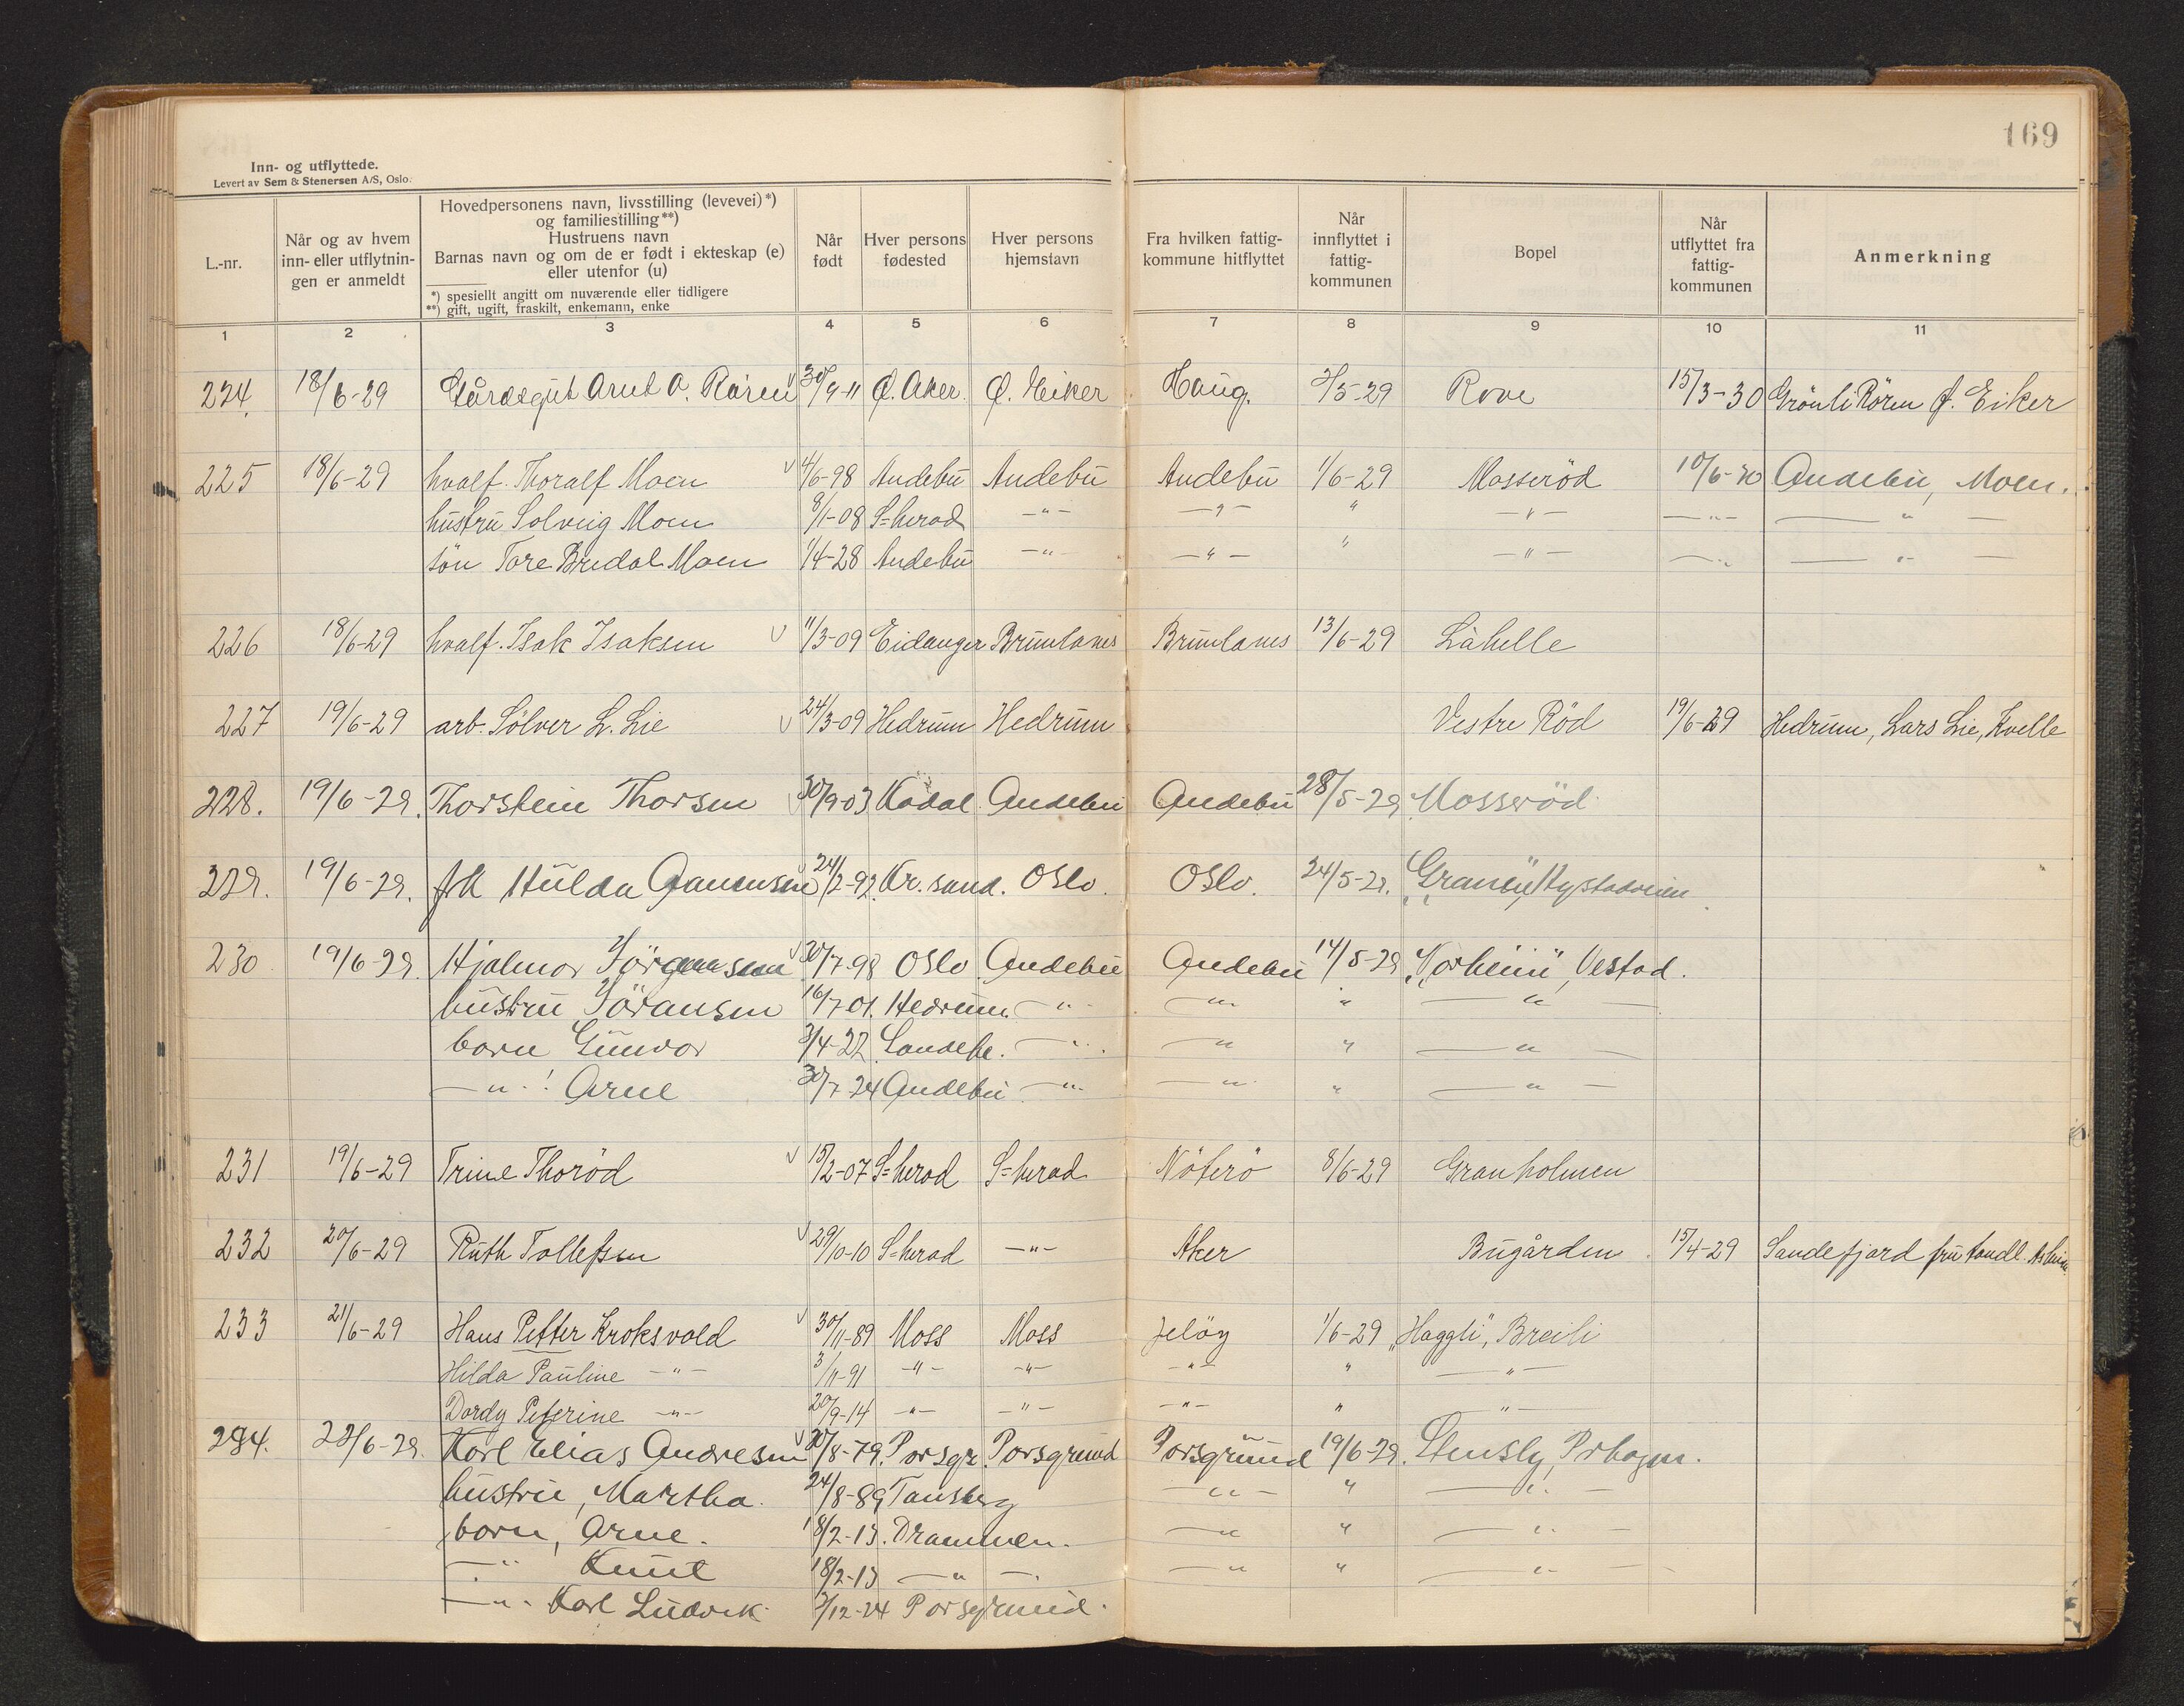 169
Inn- og utflyttede.
Levert av Sem & Stenersen A/S, Oslo.
L.-nr.
Når og av hvem inn- eller utflytningen er anmeldt
Hovedpersonens navn, livsstilling (levevei)*)
og familiestilling**)
Hustruens navn
Barnas navn og om de er født i ekteskap (e)
eller utenfor (u)
*) spesiellt angitt om nuværende eller tidligere
**) gift, ugift, fraskilt, enkemann, enke
Når født
Hver persons fødested
Hver persons hjemstavn
Fra hvilken fattigkommune hitflyttet
Når innflyttet i fattigkommunen
Bopel
Når utflyttet fra fattigkommunen
Anmerkning
1 2 3 4 5 6 7 8 9 10 11
224. 18/6-29 Gårdsgut Arnt O. Rören 30/9-11 Ø. Aker Ø. Eiker Haug. 2/5-29 Rove 15/3-30 Grönli Rören Ø. Eiker
225 18/6-29 hvalf. Thoralf Moen 4/6-98 Andebu Andebu Andebu 1/6-29 Mosserød 10/6-30 Andebu, Moen.
hustru Solveig Moen 8/1-08 S=herad -"- -"- " -"- -"- -"-
søn Tore Bredal Moen 1/4-28 Andebu -"- -"- " -"- -"- -"-
226 18/6-29 hvalf. Isak Isaksen 11/3-09 Eidanger Brunlanes Brunlanes 13/6-29 Låhelle
227 19/6-29 arb. Sölver L. Lie 24/3-09 Hedrum Hedrum Vestre Röd 19/6-29 Hedrum, Lars Lie, Kvelle
228. 19/6-29. Thorstein Thorsen 30/9-03 Kodal Andebu Andebu 28/5-29 Mosseröd
229. 19/6-29. frk Hulda 24/2-92. Kr. sand. Oslo. Oslo. 24/5-29. Nystadveien
230 19/6-29. Hjalmar Jörgensen 30/7-98 Oslo Andebu Andebu 14/5-29 "Norheim", Vestad.
hustru Jöransen 16/7-01. Hedrum. -"- -"- " -"-
barn Gunvor 3/4-22 Sandehe. -"- -"- " -"-
-"- Arne 30/7-24 Andebu -"- -"- " -"-
231 19/6-29 Trine Thoröd 15/2-07 S=herad S=herad Nöterö 8/6-29 Granholmen
232 20/6-29 Ruth Tollefsen 29/10-10 S=herad -"- Aker Bugården 15/4-29 Sandefjord fru tandl.
233 21/6-29 Hans Petter Kroksvold 30/11-89 Moss Moss Jelöy 1/6-29 "Haggli", Breili
Hilda Pauline -"- 3/11-91 -"- -"- -"- " -"-
Dordy Petrine -"- 20/9-14 -"- -"- -"- " -"-
234. 22/6-29. Karl Elias Andresen 30/8-79. Porsgr. Porsgrund Porsgrund 19/6-29.
hustru, Martha. 24/8-89 Tønsberg -"- " -"-
barn, Arne. 18/2-13. Drammen. -"- " -"-
-"- Knut 18/2-13 -"- -"- " -"-
-"- Karl Ludvik 2/12-24 Porsgrund.